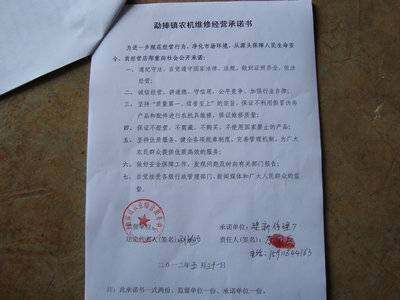 勐捧镇农机维修经营承诺书
为进一步规范经营行为，净化市场环境，从源头保障人民生命安
全，我经营店郑重向社会公开承诺：
一、遵纪守法，自觉遵守国家法律、法规，做到证照齐全，依法
经营；
二、诚信经营，讲道德，守信用，公平竞争，加强行业自律；
三、坚持“质量第一，信誉至上”的宗旨，保证不利用假冒伪劣
产品和配件进行农机具维修，保证维修质量；
四、保证不经营、不窝藏、不购买、不使用国家禁止的产品；
五、坚持优质服务，健全各项规章制度，完善管理机制，为广大
农民群众提供优质高效的服务；
六、做好安全保障工作，发现问题及时向有关部门报告；
七、自觉接受各级行政管理部门、新闻媒体和广大人民群众的监
督。
监督单位： 承诺单位：
法定代表人(签名)： 责任人(签名)：
电话：
二〇一二年 月 日
注：此承诺书一式两份，监督单位一份、承诺单位一份。